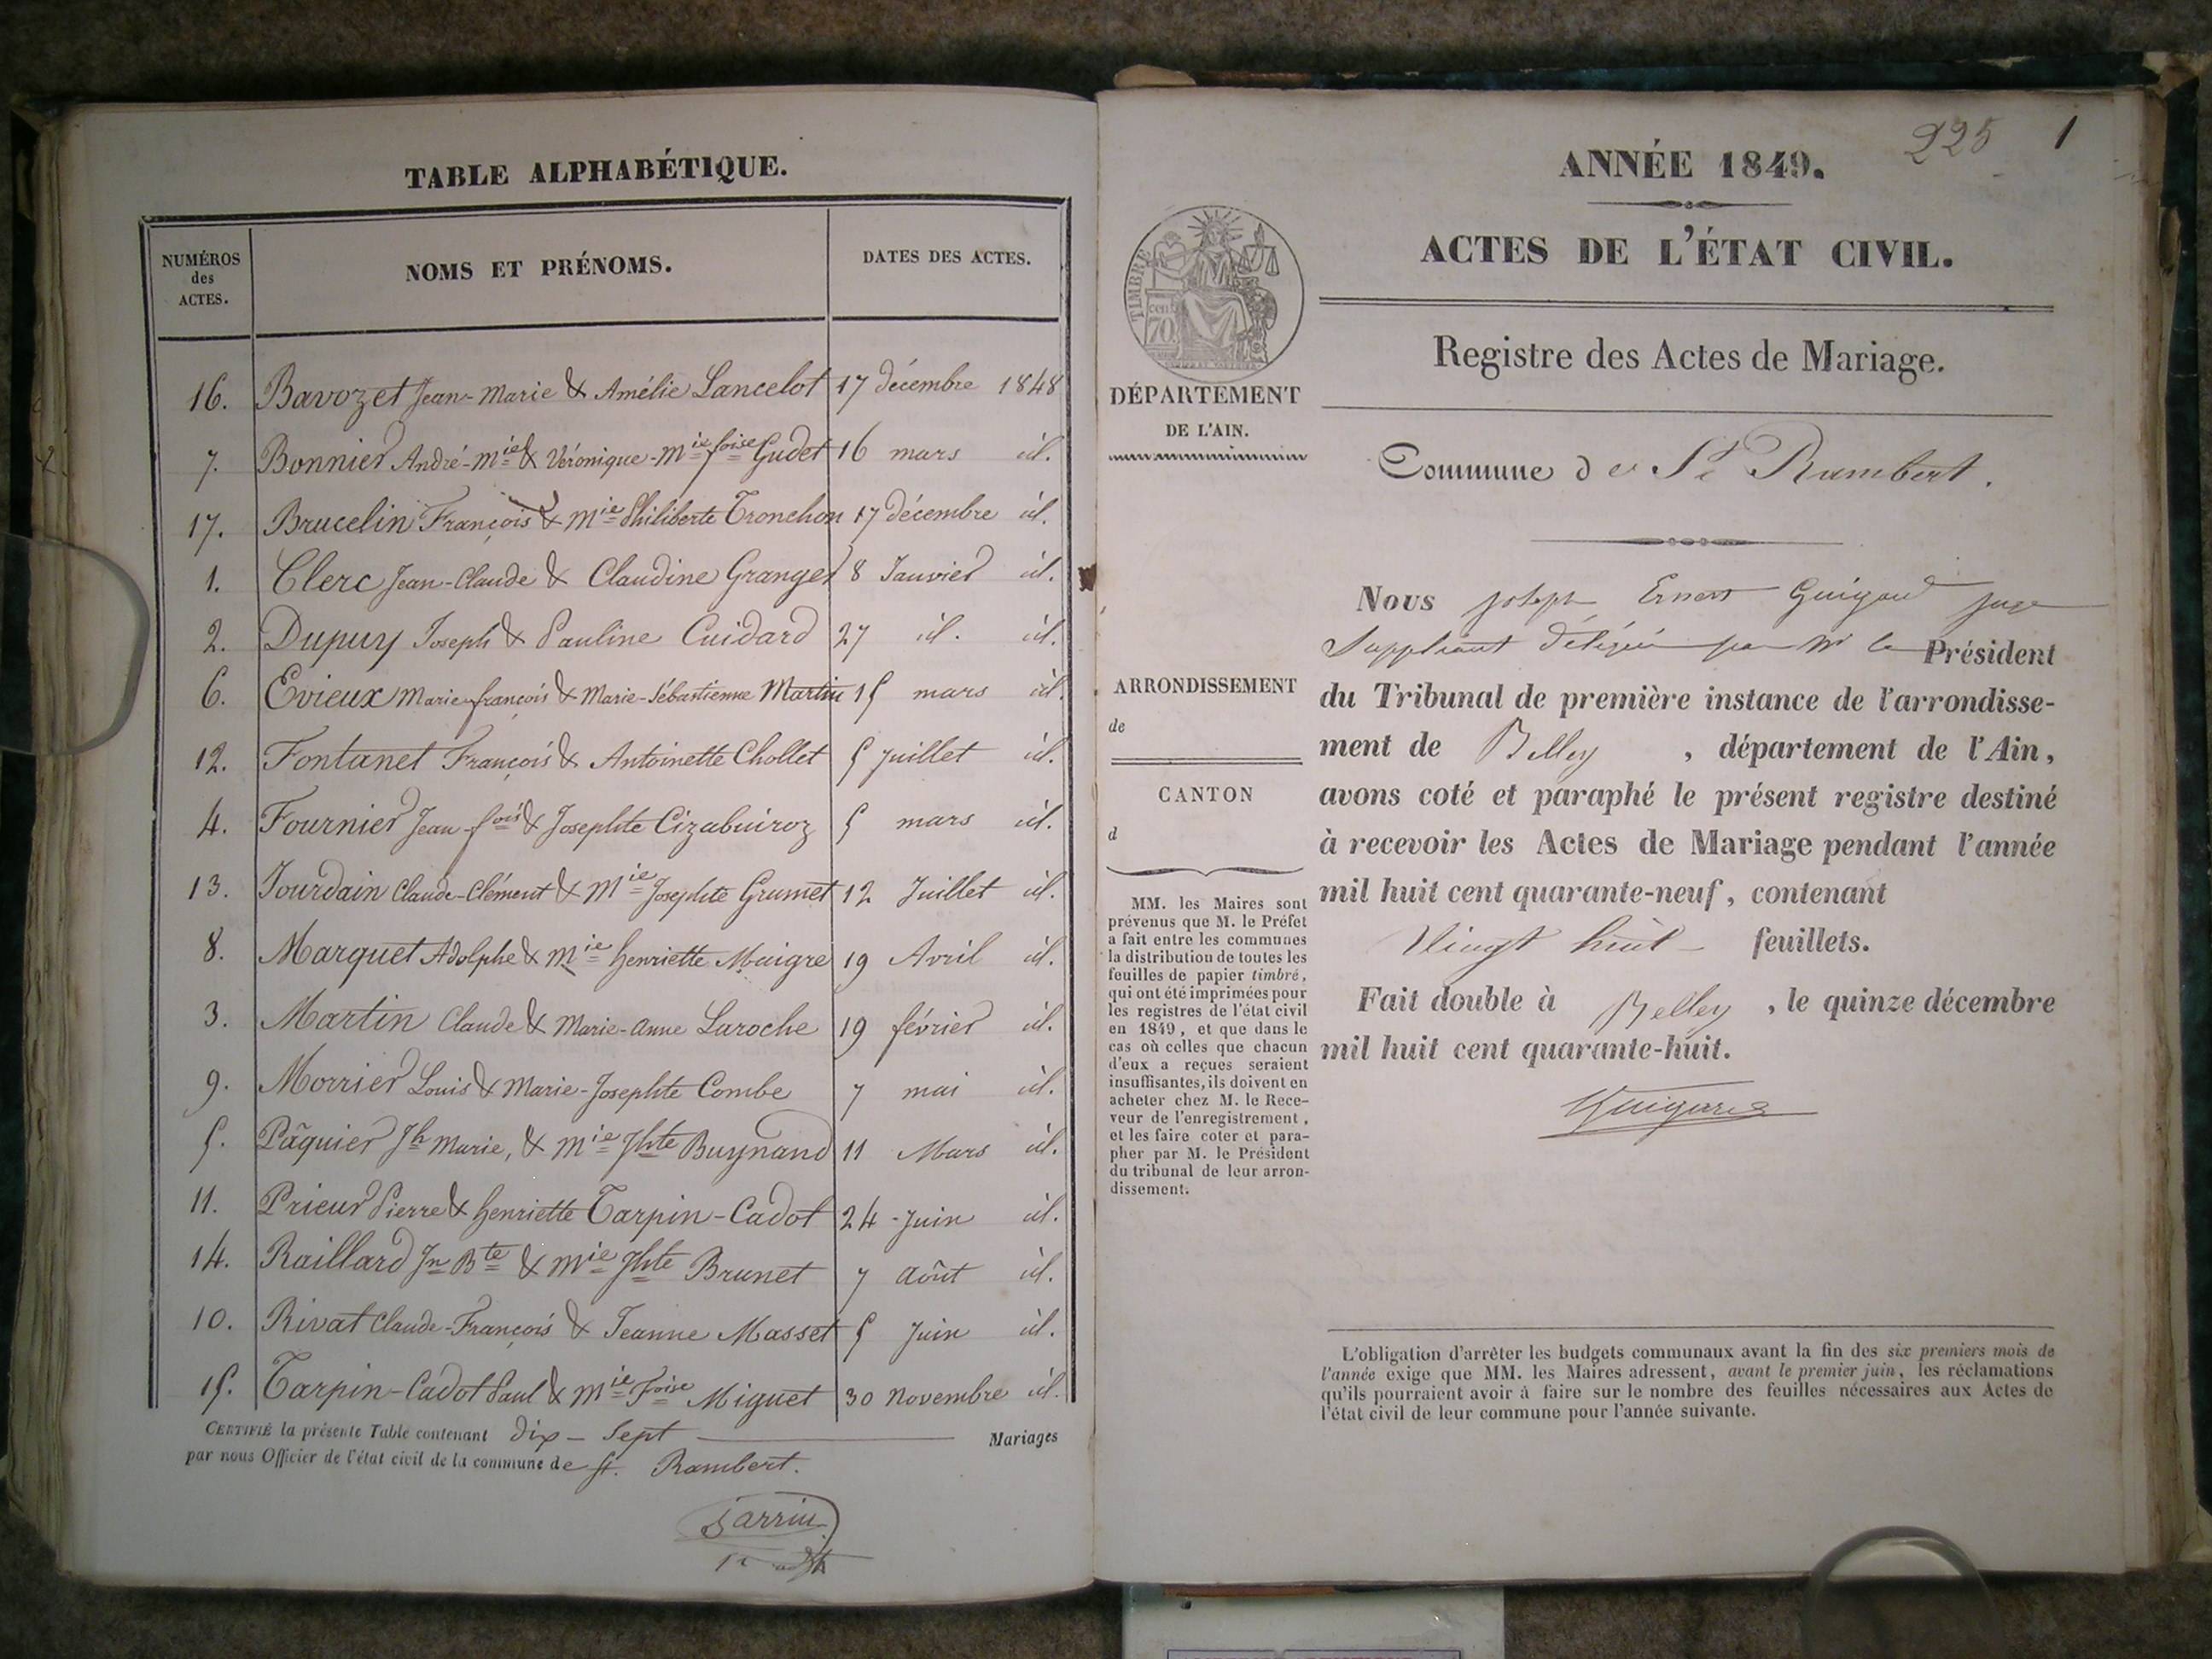 TABLE ALPHABÉTIQUE.
NUMÉROS des ACTES.
NOMS ET PRÉNOMS.
DATES DES ACTES.
16. Bavozet Jean-Marie & Amélie Lancelot 17 décembre 1848
7. Bonnier André-Mie & Véronique-Mie foise Gudet 16 mars id.
17. Brucelin François & Mie Philiberte Tronchon 17 décembre id.
1. Clerc Jean-Claude & Claudine Granger 8 Janvier id.
2. Dupuy Joseph & Pauline Cuidard 27 id. id.
6. Evieux Marie-françois & Marie-Sébastienne Martin 15 mars id.
12. Fontanet François & Antoinette Chollet 5 Juillet id.
4. Fournier Jean-fois & Josephte Cizabuiroz 5 mars id.
13. Jourdain Claude-Clément & Mie Josephte Grumet 12 Juillet id.
8. Marquet Adolphe & Mie henriette Maigre 19 Avril id.
3. Martin Claude & Marie-Anne Laroche 19 février id.
9. Morrier Louis & Marie-Josephte Combe 7 mai id.
5. Pâquier Jh Marie, & Mie Jhte Buynand 11 Mars id.
11. Prieur Pierre & henriette Tarpin-Cadot 24 Juin id.
14. Raillard Jn Bte & Mie Jhte Brunet 7 Août id.
10. Rivat Claude-François & Jeanne Masset 5 Juin id.
15. Tarpin-Cadot Paul & Mie Foise Miguet 30 Novembre id.
CERTIFIÉ la présente Table contenant dix-Sept Mariages
par nous Officier de l'état civil de la commune de St. Rambert.
225 1
ANNÉE 1849.
ACTES DE L'ÉTAT CIVIL.
Registre des Actes de Mariage.
Commune de St Rambert.
TIMBRE
cent
70
DÉPARTEMENT
DE L'AIN.
ARRONDISSEMENT
de
CANTON
d
MM. les Maires sont
prévenus que M. le Préfet
a fait entre les communes
la distribution de toutes les
feuilles de papier timbré,
qui ont été imprimées pour
les registres de l'état civil
en 1849, et que dans le
cas où celles que chacun
d'eux a reçues seraient
insuffisantes, ils doivent en
acheter chez M. le Rece-
veur de l'enregistrement,
et les faire coter et para-
pher par M. le Président
du tribunal de leur arron-
dissement.
Nous Joseph Ernest Guigard juge
Suppléant délégué par Mr le Président
du Tribunal de première instance de l'arrondisse-
ment de Belley, département de l'Ain,
avons coté et paraphé le présent registre destiné
à recevoir les Actes de Mariage pendant l'année
mil huit cent quarante-neuf, contenant
Vingt huit feuillets.
Fait double à Belley, le quinze décembre
mil huit cent quarante-huit.
Guigard
L'obligation d'arrêter les budgets communaux avant la fin des six premiers mois de
l'année exige que MM. les Maires adressent, avant le premier juin, les réclamations
qu'ils pourraient avoir à faire sur le nombre des feuilles nécessaires aux Actes de
l'état civil de leur commune pour l'année suivante.